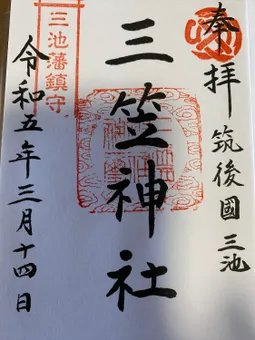 奉拝
筑後國三池
三笠神社
三池藩鎮守
令和五年三月十四日